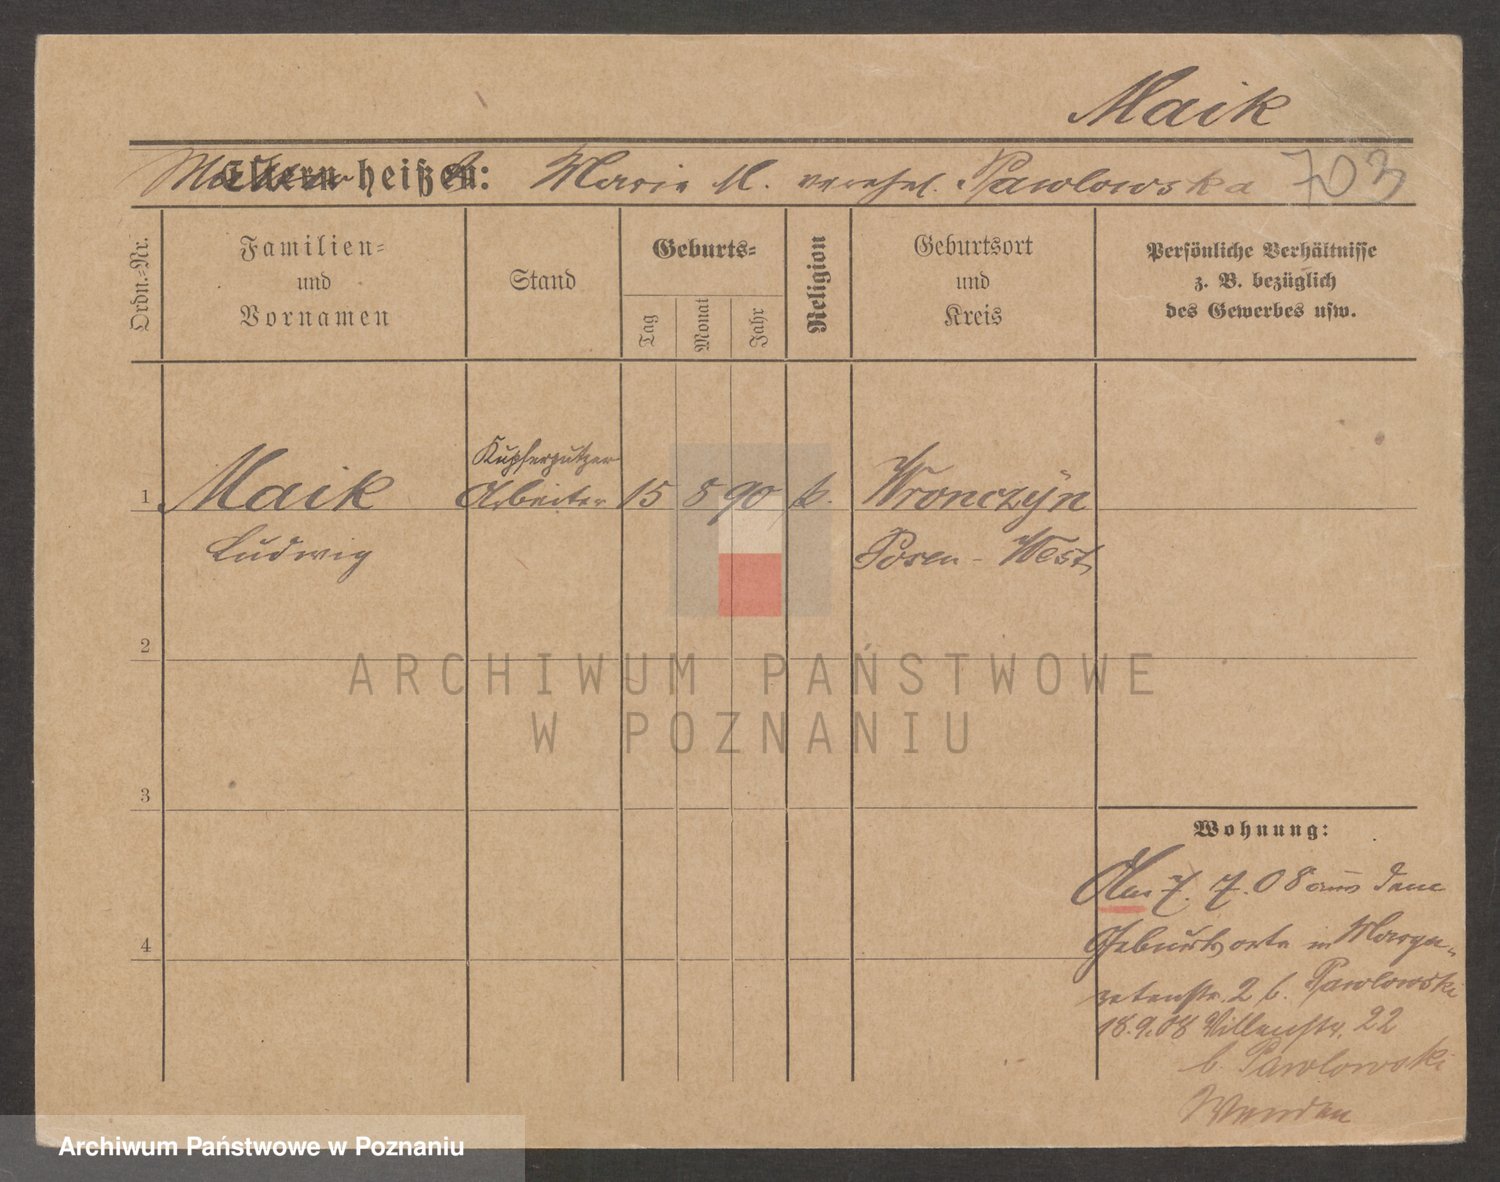 Maik
Eltern heißen: Marie M. verehel. Pawlowska 703
Ordn.-Nr.
Familien-
und
Vornamen
Stand
Geburts-
Tag
Monat
Jahr
Religion
Geburtsort
und
Kreis
Persönliche Verhältnisse
z. B. bezüglich
des Gewerbes usw.
Kupferputzer
1 Maik Arbeiter 15 8 90 k. Wronczyn
Ludwig Posen-West
2
ARCHIWUM PAŃSTWOWE
W POZNANIU
3
Wohnung:
7. 08 aus dem
4
Geburtsorte in Marga-
retenstr. 2 b. Pawlowski
18.9.08 Villenstr. 22
b. Pawlowski
Archiwum Państwowe w Poznaniu